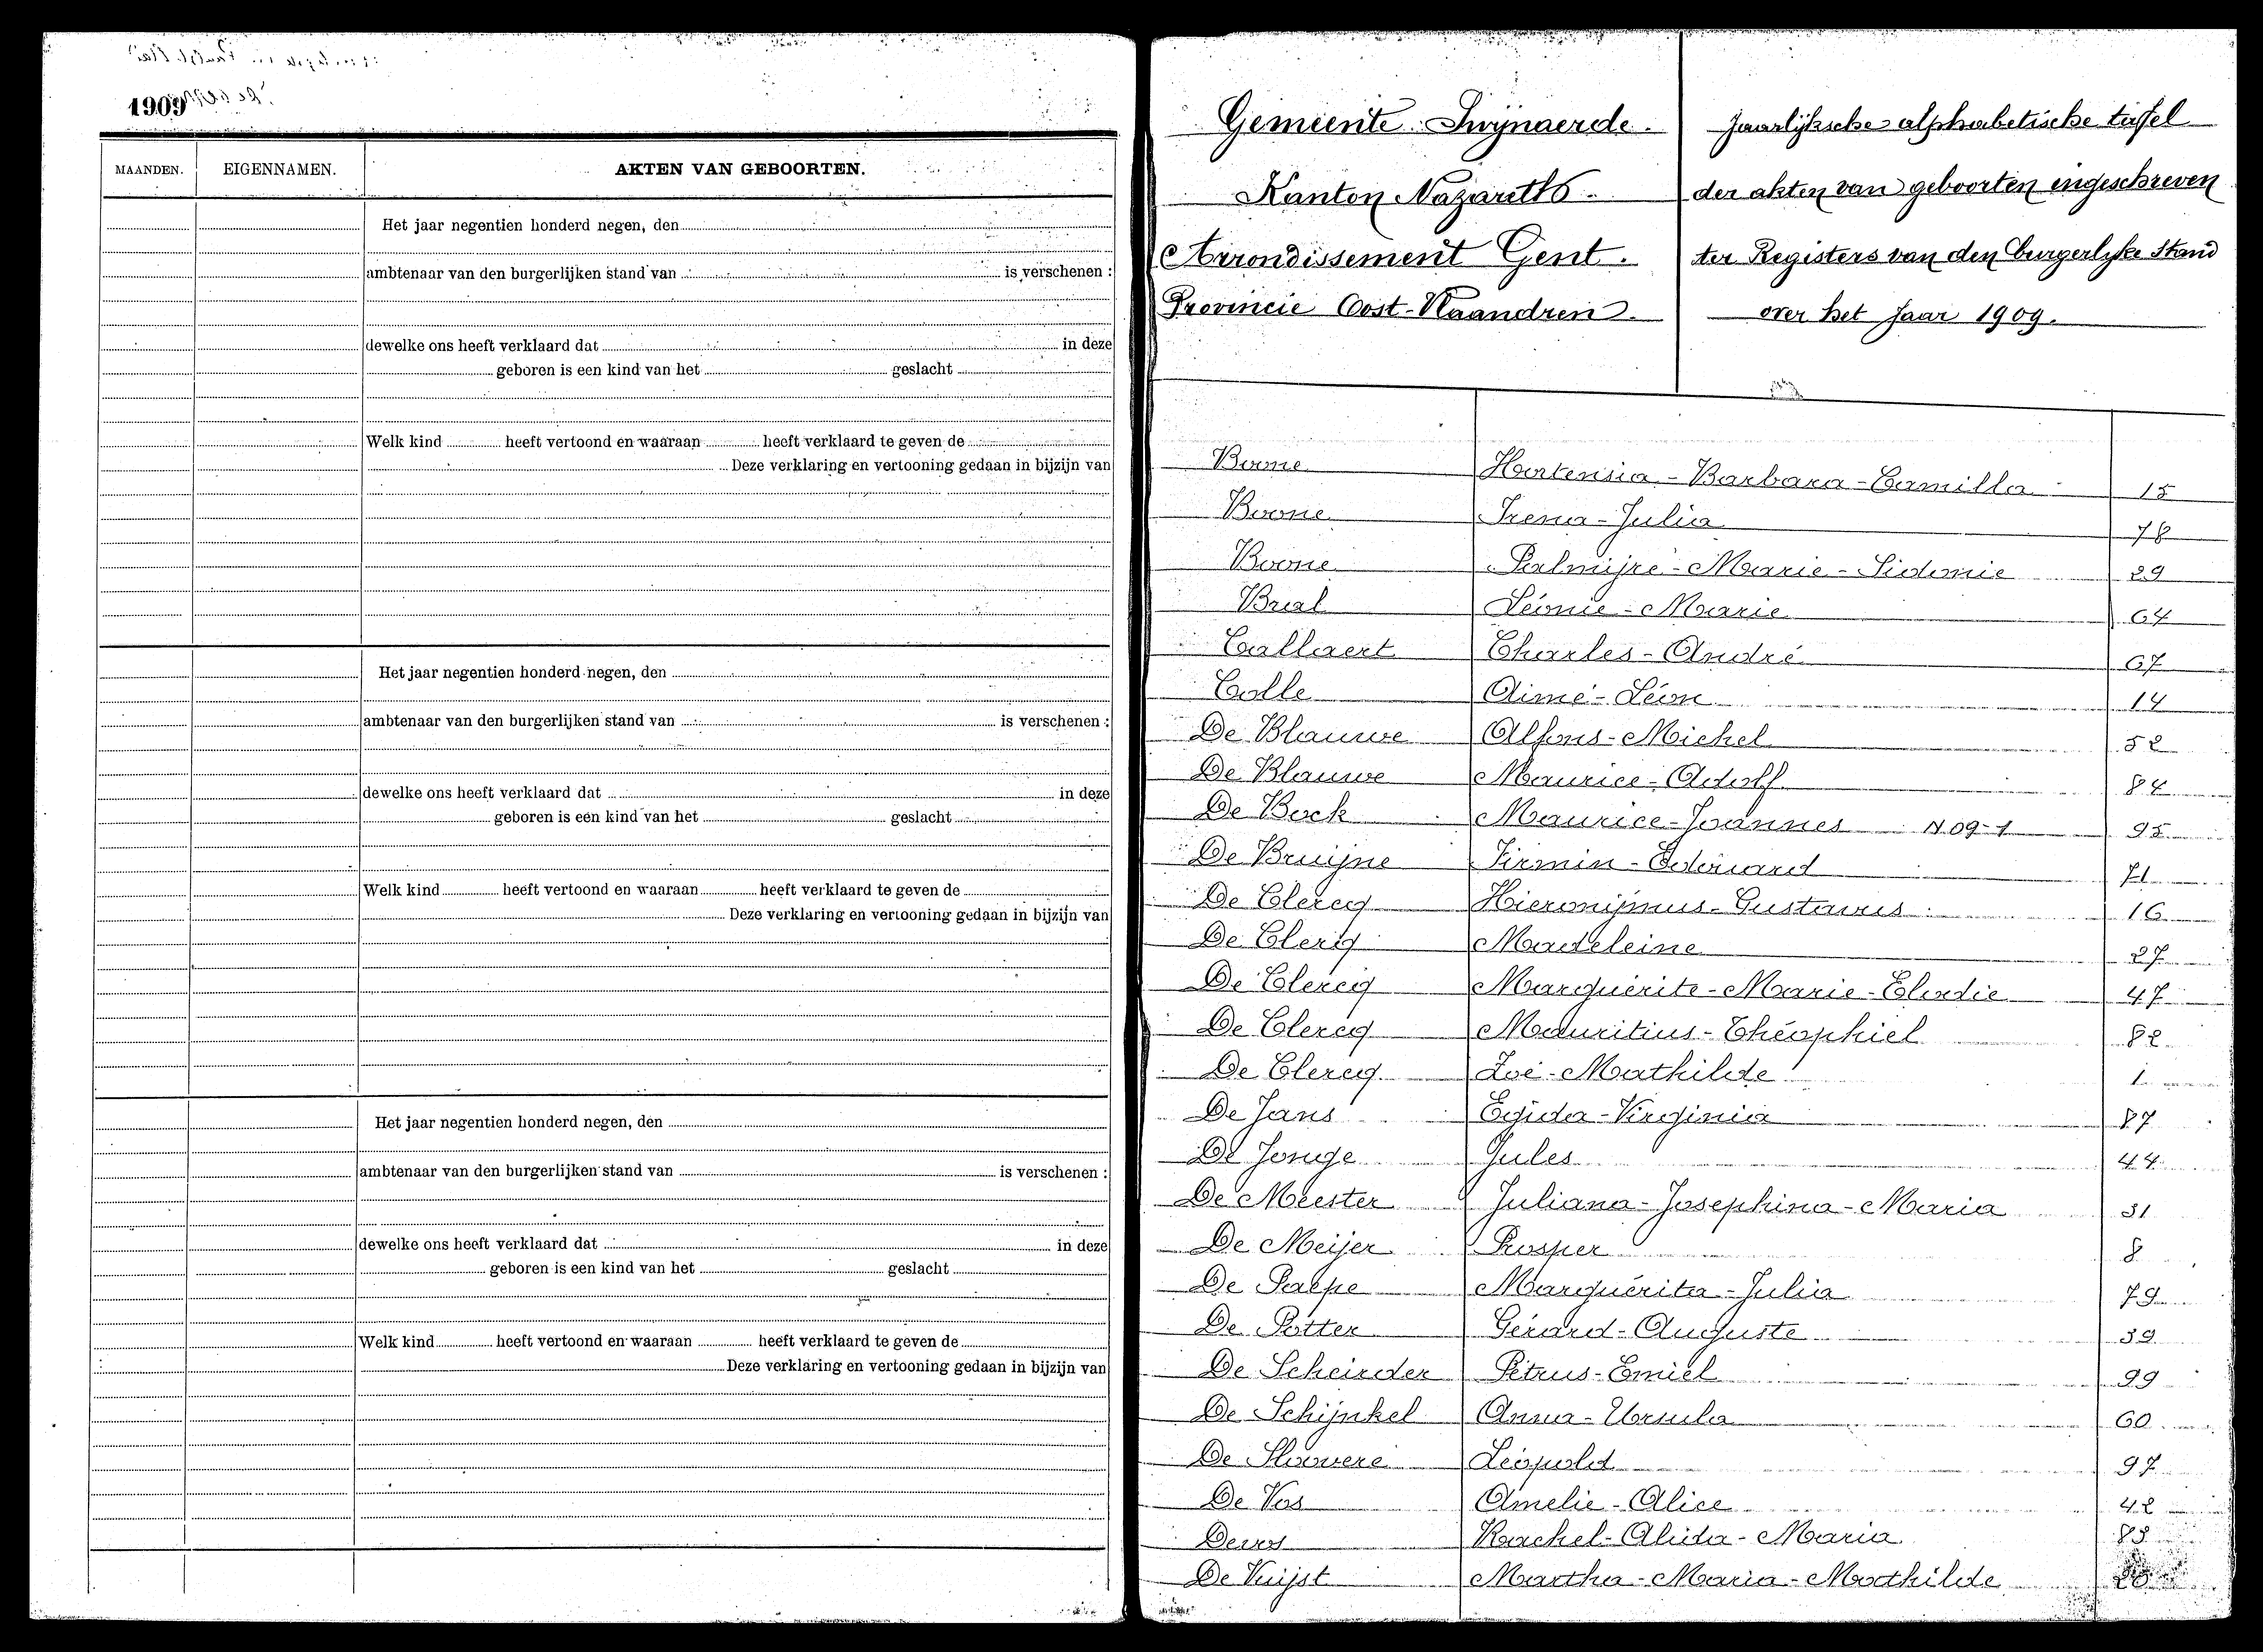 1909
MAANDEN. EIGENNAMEN. AKTEN VAN GEBOORTEN.
Het jaar negentien honderd negen, den
ambtenaar van den burgerlijken stand van is verschenen :
dewelke ons heeft verklaard dat in deze
geboren is een kind van het geslacht
Welk kind heeft vertoond en waaraan heeft verklaard te geven de
Deze verklaring en vertooning gedaan in bijzijn van
Het jaar negentien honderd negen, den
ambtenaar van den burgerlijken stand van is verschenen :
dewelke ons heeft verklaard dat in deze
geboren is een kind van het geslacht
Welk kind heeft vertoond en waaraan heeft verklaard te geven de
Deze verklaring en vertooning gedaan in bijzijn van
Het jaar negentien honderd negen, den
ambtenaar van den burgerlijken stand van is verschenen :
dewelke ons heeft verklaard dat in deze
geboren is een kind van het geslacht
Welk kind heeft vertoond en waaraan heeft verklaard te geven de
Deze verklaring en vertooning gedaan in bijzijn van
Gemeente Swynaerde.
Kanton Nazareth.
Arrondissement Gent.
Provincie Oost-Vlaandren.
Jaarlijksche alphabetische tafel
der akten van geboorten ingeschreven
ter Registers van den burgerlyke Stand
over het Jaar 1909.
Boone Hortensia-Barbara-Camilla 15
Boone Irena-Julia 78
Boone Palmijre-Marie-Sidonie 29
Brial Léonie-Marie 64
Callaert Charles-André 67
Calle Aimé-Léon 14
De Blauwe Alfons-Michel 52
De Blauwe Maurice-Adolf 84
De Bock Maurice-Joannes N 09-1 95
De Bruijne Firmin-Edouard 71
De Clercq Hieronijmus-Gustavus 16
De Clercq Madeleine 27
De Clercq Marguérite-Marie-Elodie 47
De Clercq Mauritius-Théophiel 82
De Clercq Zoé-Mathilde 1
De Jans Egida-Virginia 87
De Jonge Jules 44
De Meester Juliana-Josephina-Maria 31
De Meijer Prosper 8
De Paepe Marguérita-Julia 79
De Potter Gérard-Auguste 39
De Scheirder Petrus-Emiel 99
De Schijnkel Anna-Ursula 60
De Sloovere Léopold 97
De Vos Amelie-Alice 42
Devos Rachel-Alida-Maria 85
De Vuijst Martha-Maria-Mathilde